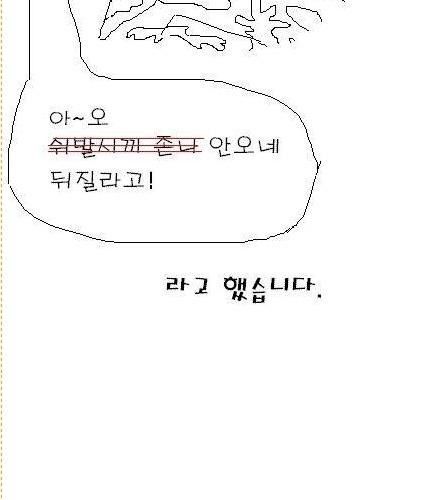 아~오
쉬발시끼 존나 안오네
뒤질라고!
라고 했습니다.